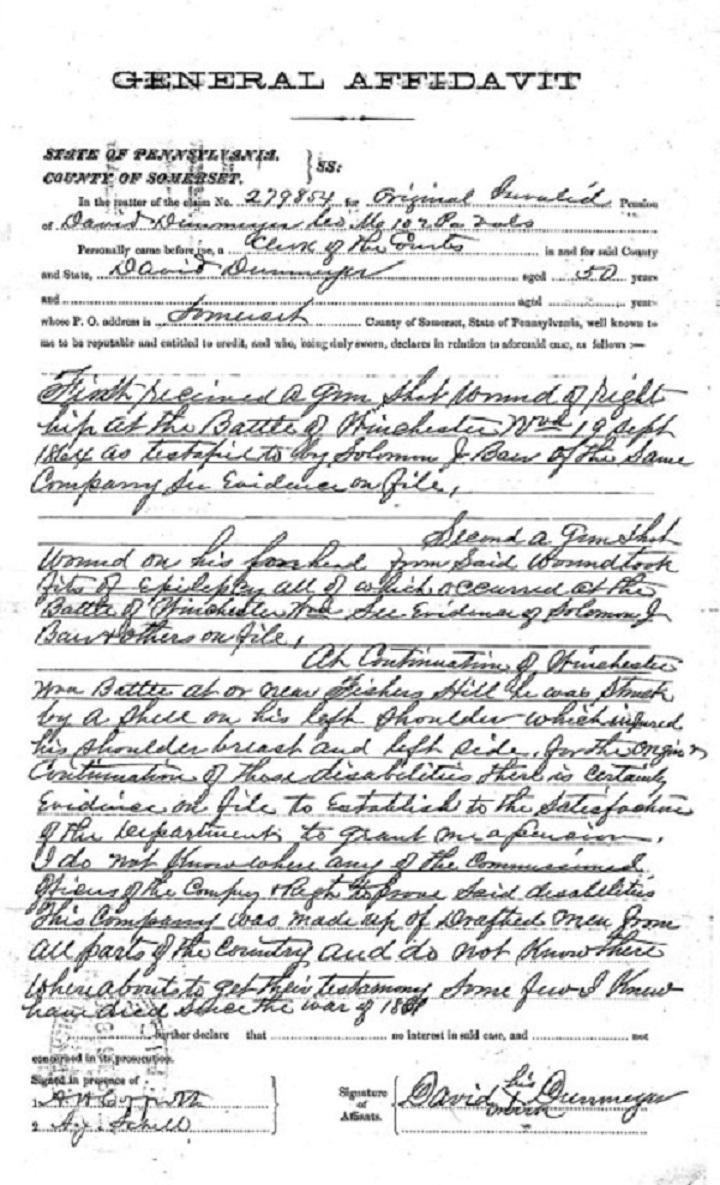 GENERAL AFFIDAVIT
STATE OF PENNSYLVANIA,
COUNTY OF SOMERSET. } SS:
In the matter of the claim No. 279854 for Original Invalid Pension
of David Dunmeyer Pa Vols
Personally came before me, a Clerk of the Courts in and for said County
and State, David Dunmeyer aged 50 years
and aged years
whose P. O. address is Somerset County of Somerset, State of Pennsylvania, well known to
me to be reputable and entitled to credit, and who, being duly sworn, declares in relation to aforesaid case, as follows :—
First received a gun shot wound of right
hip at the Battle of Winchester 19 Sept
1864 as testified to by Solomon J Baer of the Same
Company See Evidence on file,
Second a Gun Shot
wound on his forehead from Said Wound took
fits of epilepsy all of which occurred at the
Battle of Winchester See Evidence of Solomon J
Baer & others on file,
At Continuation of Winchester
Battle at or near Fishers Hill he was Struck
by a Shell on his left Shoulder which injured
his Shoulder breast and left side. for the origin &
Continuation of those disabilities there is certainly
Evidence on file to Establish to the Satisfaction
of the Department to grant me a pension.
I do not Know where any of the Commissioned
Officers of the Company & Regt to prove Said disabilities
This Company was made up of Drafted men from
all parts of the Country and do not Know there
whereabouts to get their testimony Some few I Know
have died since the war of 1861
further declare that no interest in said case, and not
concerned in its prosecution.
Signed in presence of
1.
2 A.J. Schell
Signature
of
Affiants.
David his x mark Dunmeyer